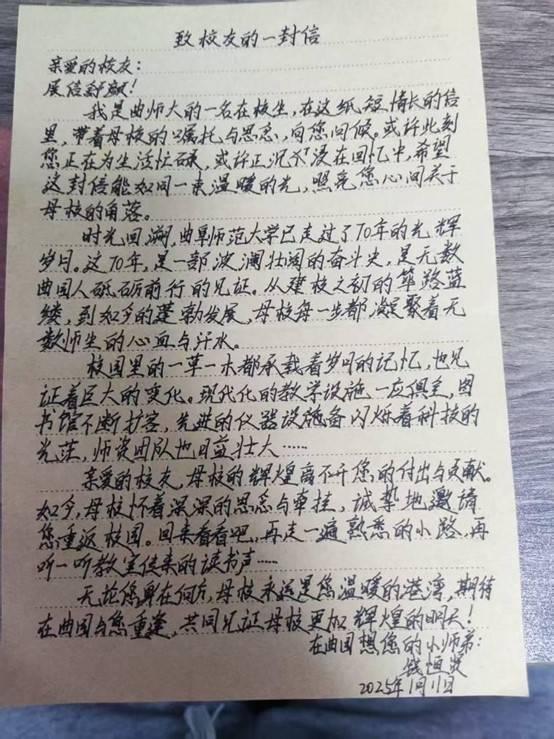 致校友的一封信
亲爱的校友：
展信舒颜！
我是曲师大的一名在校生，在这纸短情长的信
里，带着母校的嘱托与思念，向您问候。或许此刻
您正在为生活忙碌，或许正沉浸在回忆中，希望
这封信能如同一束温暖的光，照亮您心间关于
母校的角落。
时光回溯，曲阜师范大学已走过了70年的光辉
岁月。这70年，是一部波澜壮阔的奋斗史，是无数
曲园人砥砺前行的见证。从建校之初的筚路蓝
缕，到如今的蓬勃发展，母校每一步都凝聚着无
数师生的心血与汗水。
校园里的一草一木都承载着岁月的记忆，也见
证着巨大的变化。现代化的教学设施一应俱全，图
书馆不断扩容，先进的仪器设施备闪烁着科技的
光芒，师资团队也日益壮大……
亲爱的校友，母校的辉煌离不开您的付出与贡献。
如今，母校怀着深深的思念与牵挂，诚挚地邀请
您重返校园。回来看看吧，再走一遍熟悉的小路，再
听一听教室传来的读书声……
无论您身在何方，母校永远是您温暖的港湾，期待
在曲园与您重逢，共同见证母校更加辉煌的明天！
在曲园想您的小师弟：
2025年1月11日